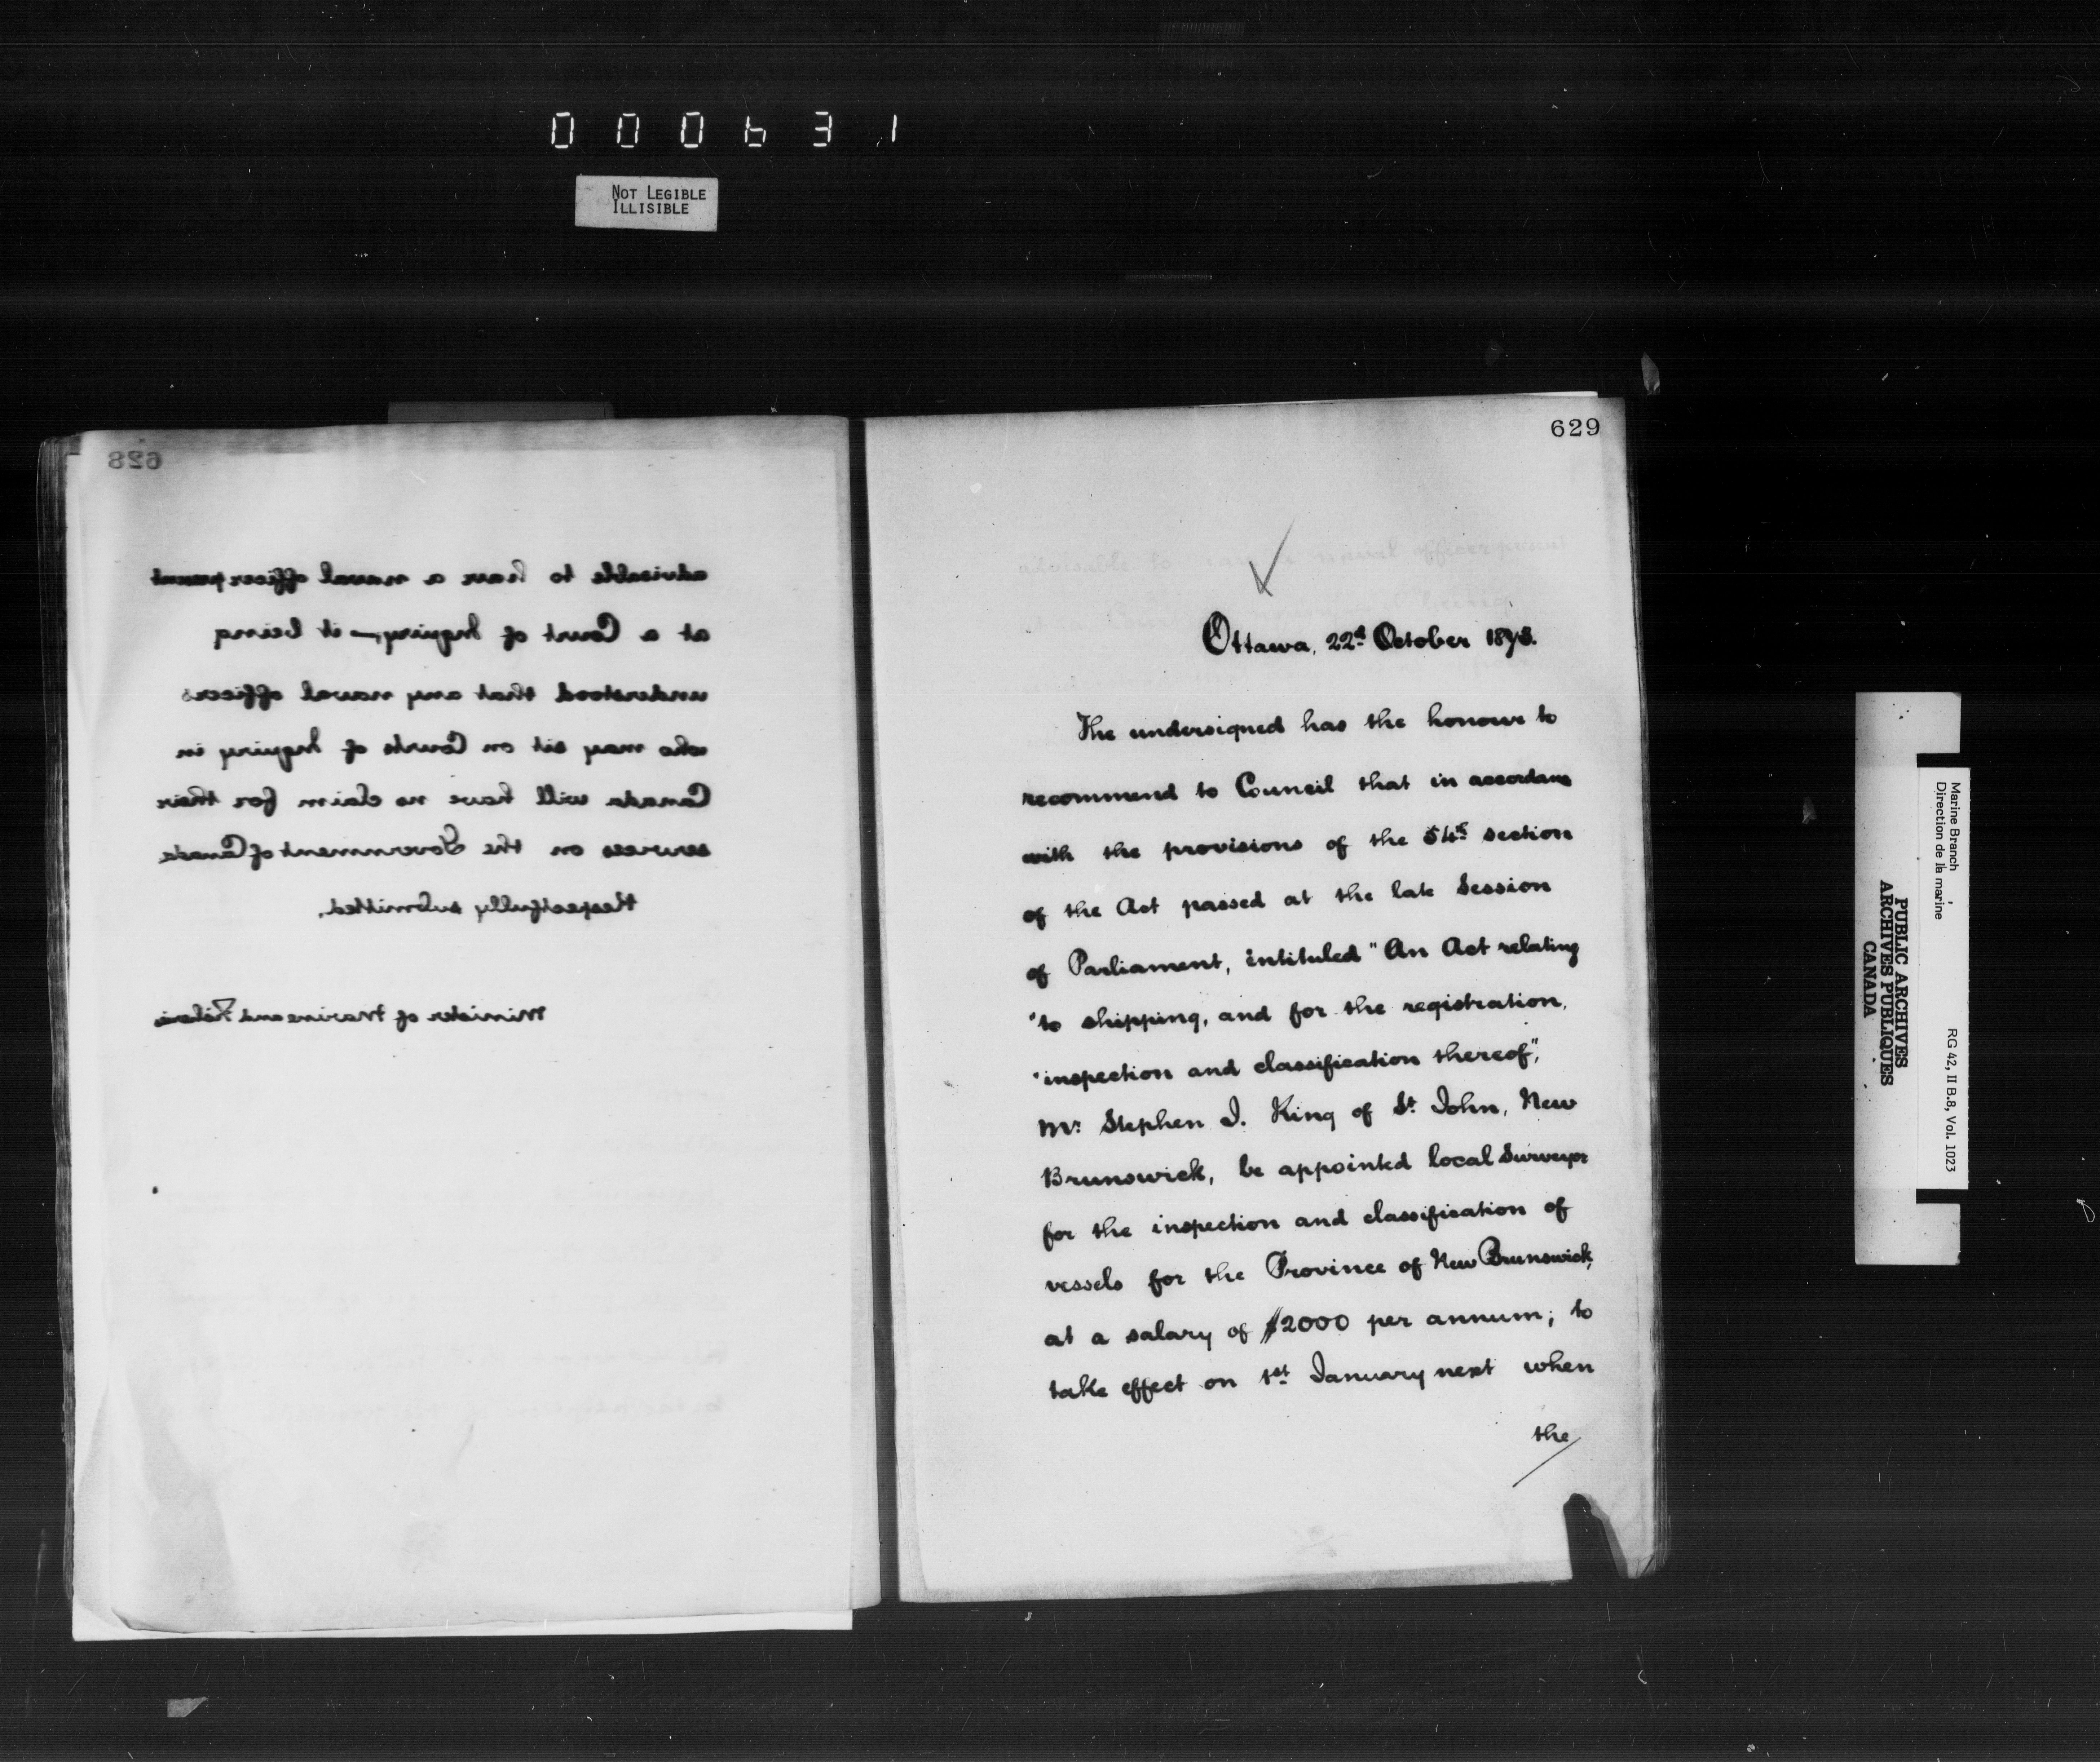 000631
NOT LEGIBLE
ILLISIBLE
628
advisable to have a naval officer present
at a Court of Inquiry,—it being
understood that any naval officers
who may sit on Courts of Inquiry in
Canada will have no claim for their
services on the Government of Canada
Respectfully submitted,
Minister of Marine and Fisheries
629
Ottawa, 22d October 1873.
The undersigned has the honour to
recommend to Council that in accordance
with the provisions of the 54th section
of the Act passed at the late Session
of Parliament, intituled "An Act relating
"to shipping, and for the registration,
"inspection and classification thereof",
Mr. Stephen J. King of St. John, New
Brunswick, be appointed local Surveyor
for the inspection and classification of
vessels for the Province of New Brunswick,
at a salary of $2000 per annum; to
take effect on 1st January next when
the
Marine Branch
Direction de la marine
RG 42, II B.8, Vol. 1023
PUBLIC ARCHIVES
ARCHIVES PUBLIQUES
CANADA